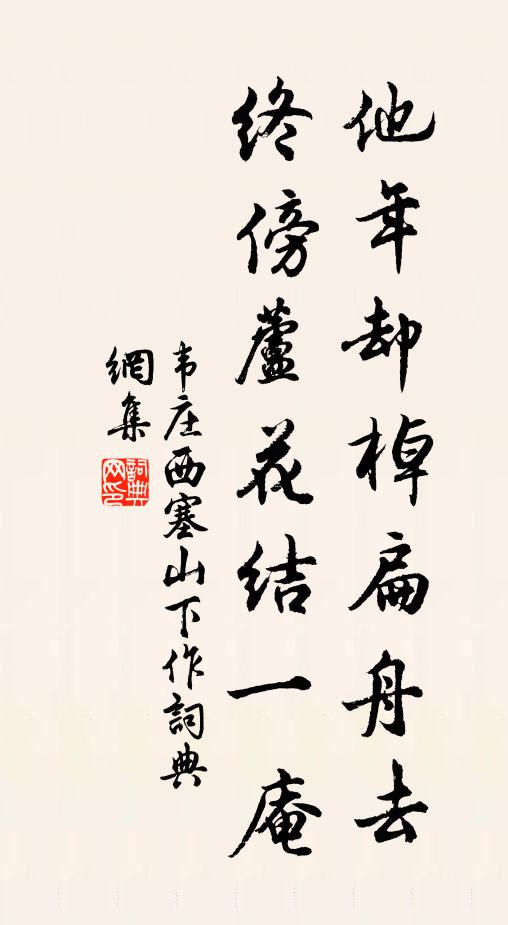 他年却棹扁舟去
终傍蘆花结一庵
韦庄西塞山下作詞典
網集
詞典网印